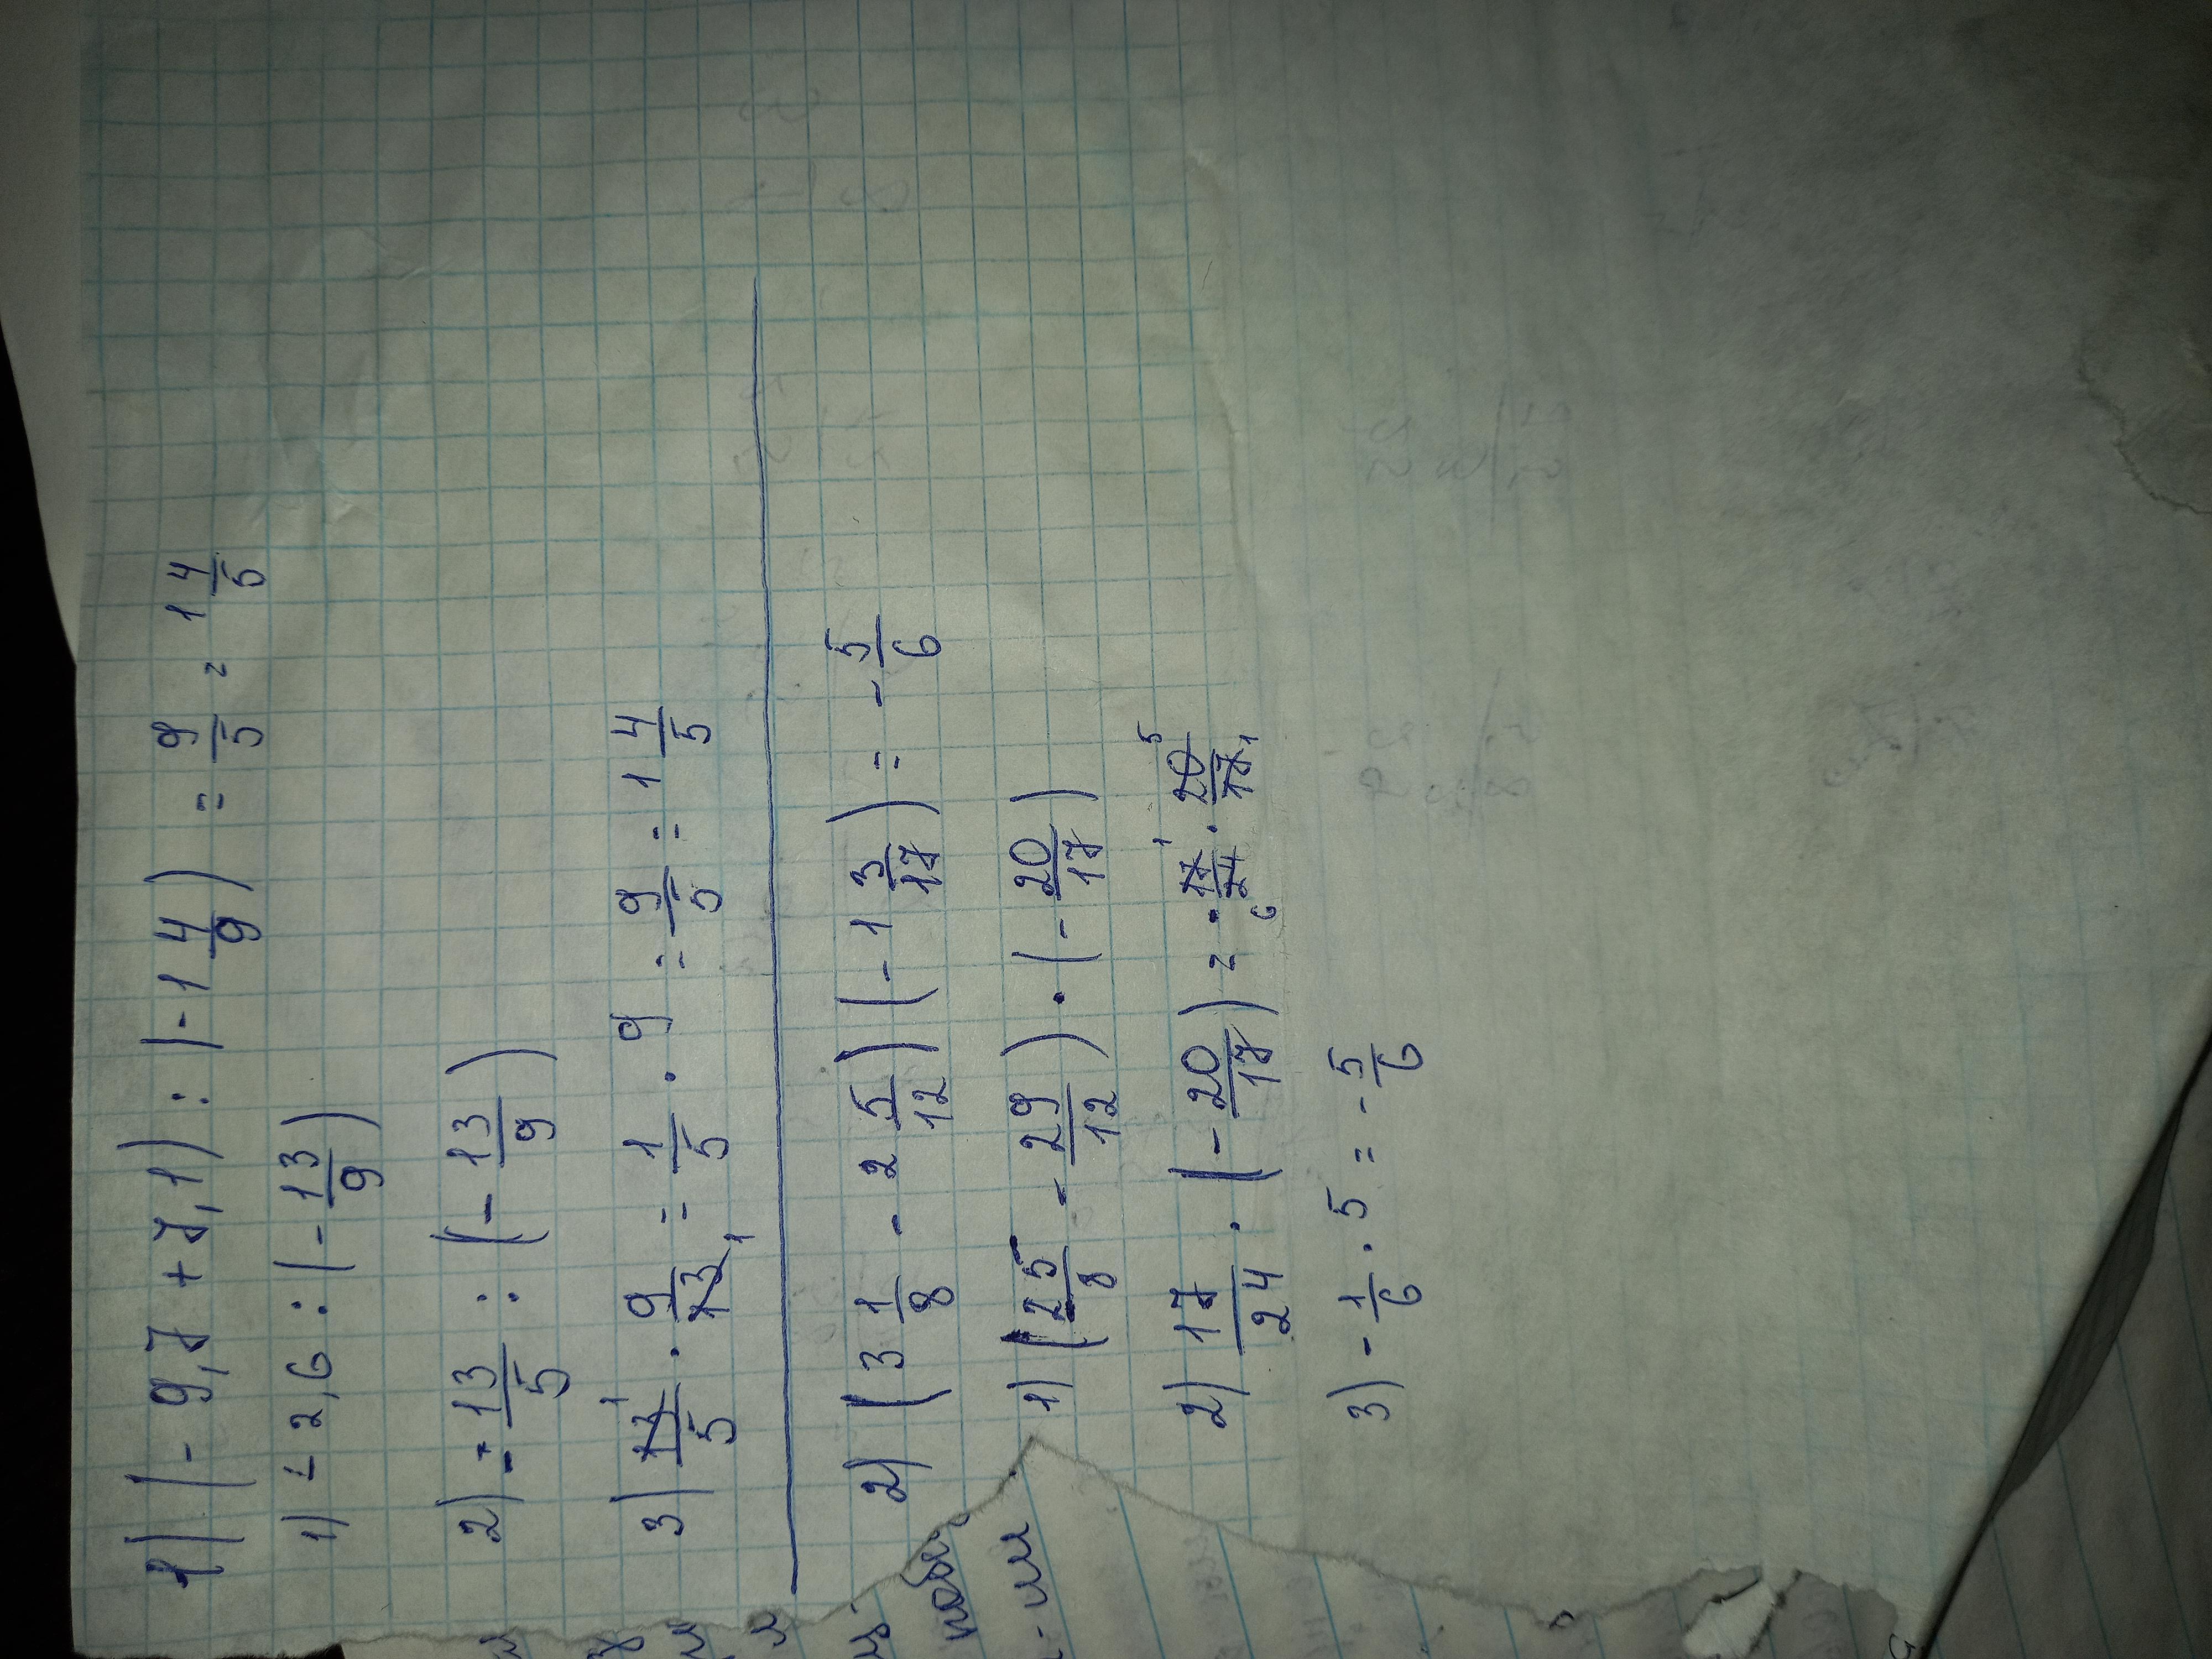 1) (- 9,7 + 7,1) : (-1 4/9) = 9/5 = 1 4/5
1) - 2,6 : (- 13/9)
2) - 13/5 : (- 13/9)
3) 13/5 · 9/13 = 1/5 · 9 = 9/5 = 1 4/5
2) (3 1/8 - 2 5/12) (- 1 3/17) = - 5/6
1) (25/8 - 29/12) · (- 20/17)
2) 17/24 · (- 20/17) = - 17/24 · 20/17
3) - 1/6 · 5 = - 5/6